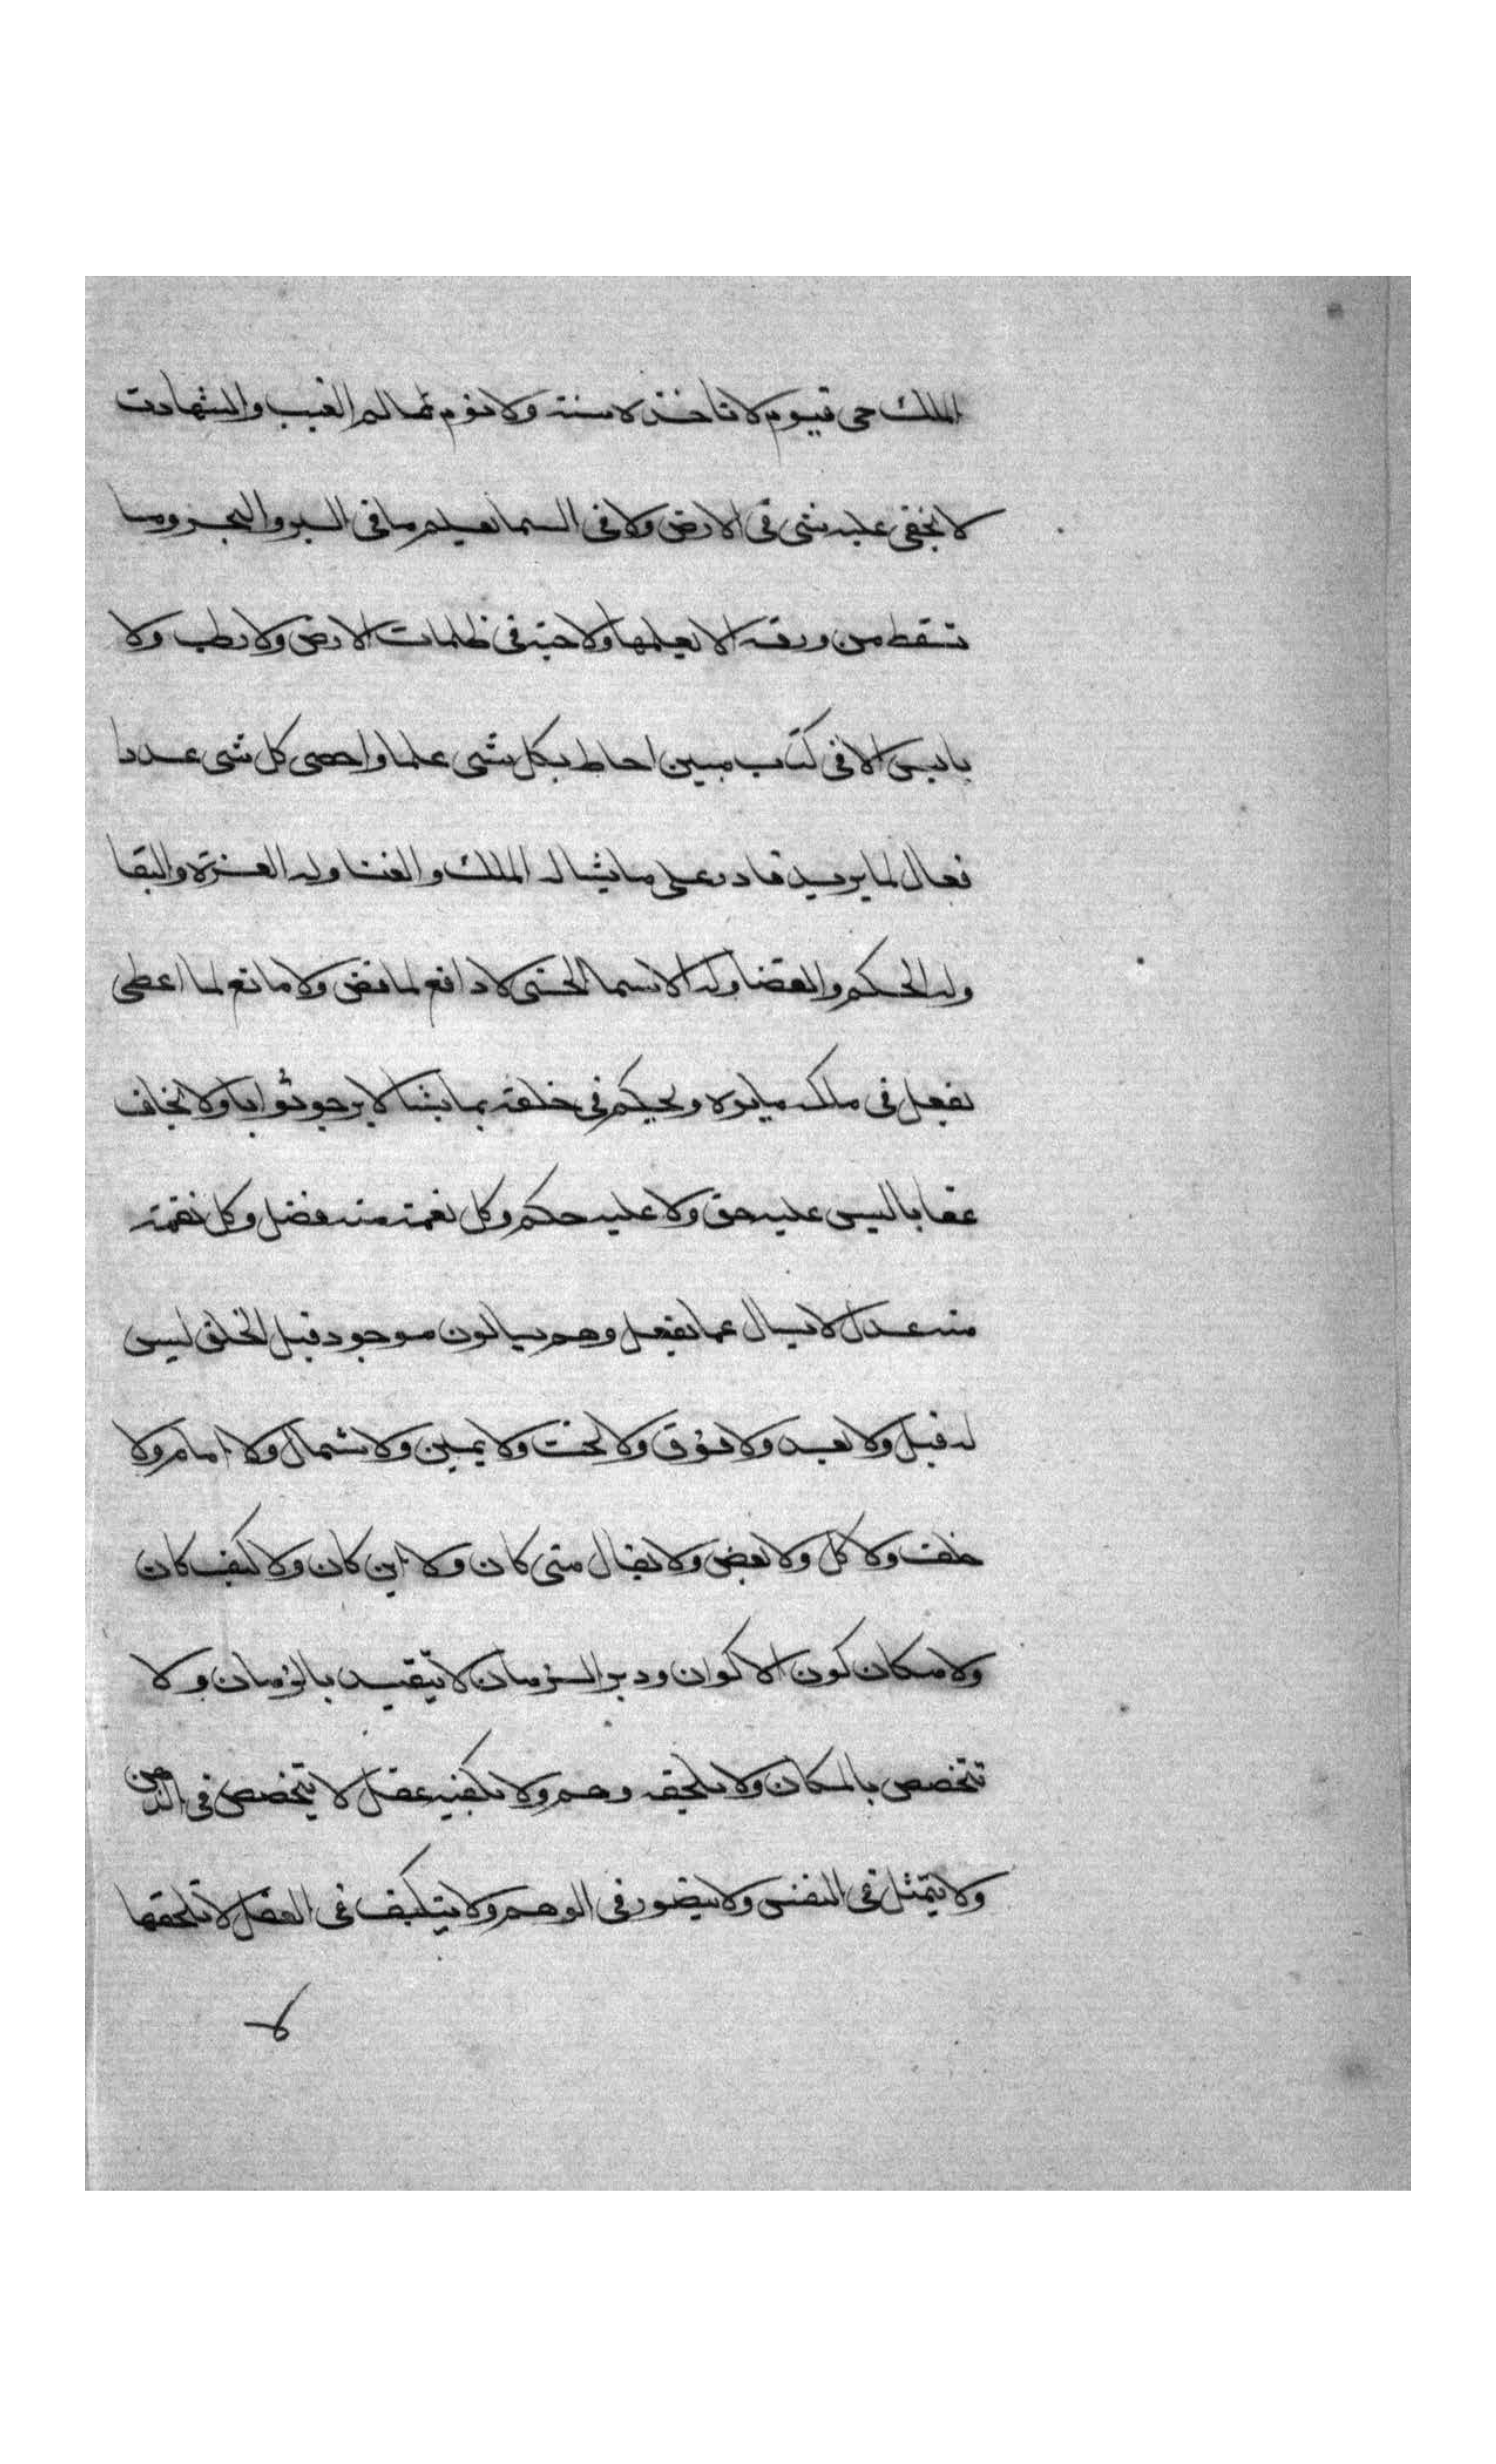 الملك حي قيوم لا تاخذه سنة ولا نوم عالم الغيب والشهادت
لا يخفى عليه شي في الارض ولا في السما يعلم ما في البر والبحر وما
تسقط من ورقه الا يعلمها ولا حبة في ظلمات الارض ولا رطب ولا
يابس الا في كتاب مبين احاط بكل شي علما واحصى كل شي عددا
فعال لما يريد قادر على ما يشا له الملك والغنا وله العزة والبقا
وله الحكم والقضا وله الاسما الحسنى لا دافع لما قضى ولا مانع لما اعطى
يفعل في ملكه ما يريد ويحكم في خلقه بما يشا لا يرجو ثوابا ولا يخاف
عقابا ليس عليه حق ولا عليه حكم وكل نعمة منه فضل وكل نقمة
منه عدل لا يسال عما يفعل وهم يسالون موجود قبل الخلق ليس
له قبل ولا بعد ولا فوق ولا تحت ولا يمين ولا شمال ولا امام ولا
خلف ولا كل ولا بعض ولا يقال متى كان ولا اين كان ولا كيف كان
ولا مكان كون الاكوان ودبر الزمان لا يتقيد بالزمان ولا
يتخصص بالمكان ولا يلحقه وهم ولا يكيفه عقل لا يتخصص في الذهن
ولا يتمثل في النفس ولا يتصور في الوهم ولا يتكيف في العقل لا تلحقها
لا